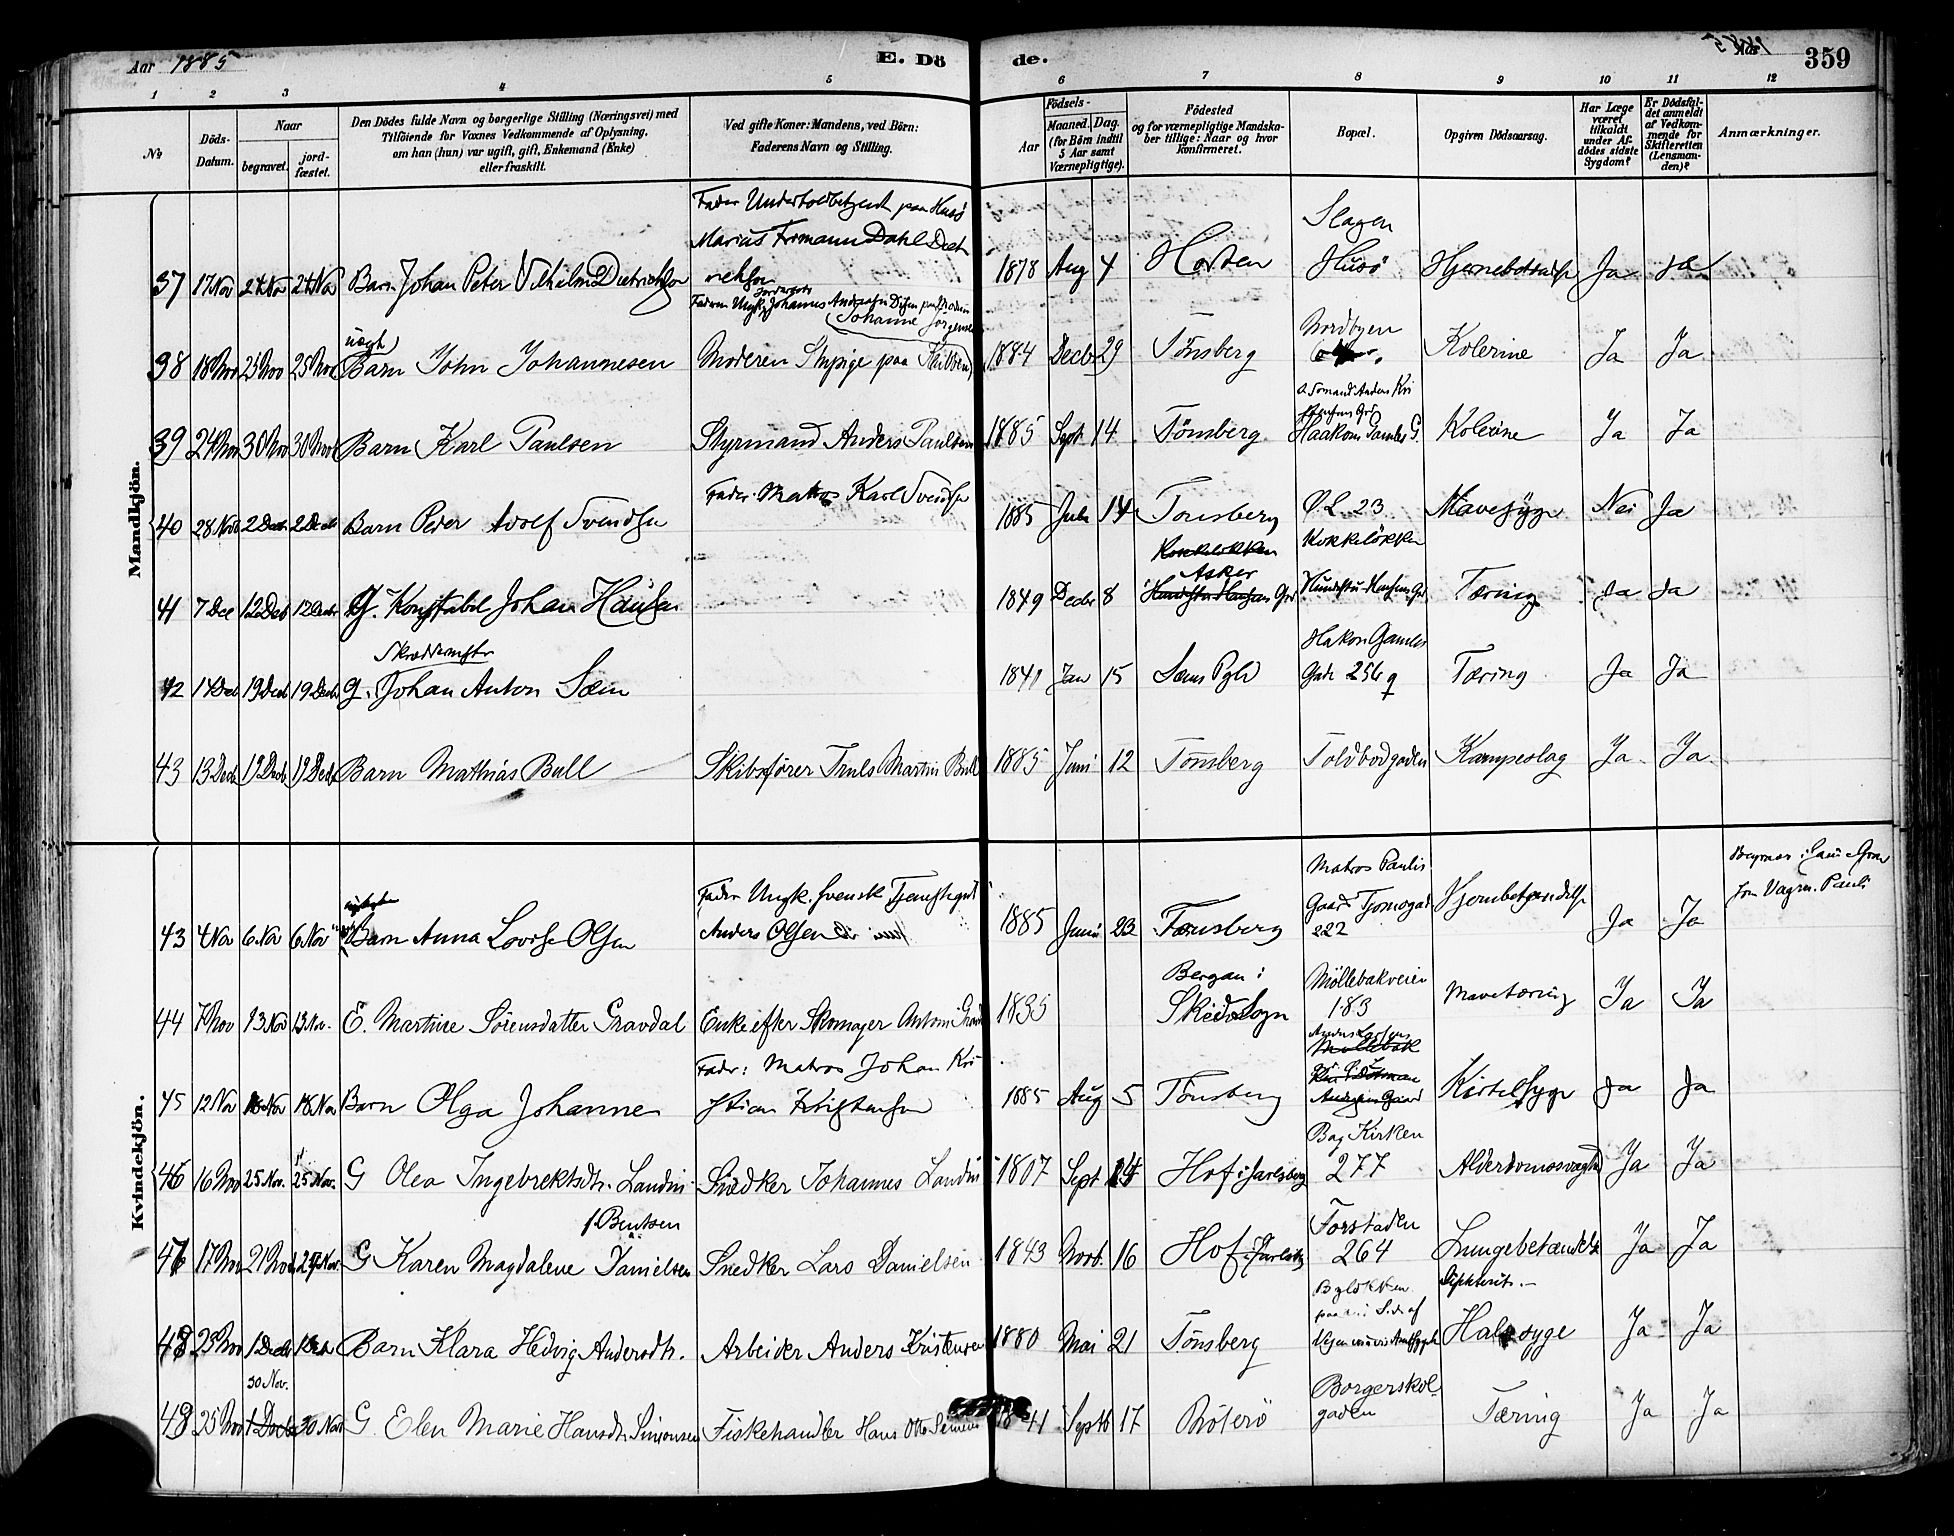 Aar 1885
E. Dö
de.
1885
359
1 2 3 4 5 6 7 8 9 10 11 12
No.
Döds-Datum.
Naar
begravet.
jord-fæstet.
Den Dödes fulde Navn og borgerlige Stilling (Næringsvei) med
Tilföiende for Voxnes Vedkommende af Oplysning,
om han (hun) var ugift, gift, Enkemand (Enke)
eller fraskilt.
Ved gifte Koner: Mandens, ved Börn:
Faderens Navn og Stilling.
Födsels-
Aar
Maaned. Dag.
(for Börn indtil
5 Aar samt
Værnepligtige).
Födested
og for værnepligtige Mandska-
ber tillige: Naar og hvor
konfirmeret.
Bopæl.
Opgiven Dödsaarsag.
Har Læge
været
tilkaldt
under Af-
dödes sidste
Sygdom?
Er Dödsfal-
det anmeldt
af Vedkom-
mende for
Skifteretten
(Lensman-
den)?
Anmærkninger.
Mandkjön.
Fader Undertoldbetjent paa Husö
Marius Frimann Dahl Diet
Slagen
37 17 Nov 24 Nov 24 Nov Barn Johan Peter Vilhelm Dietrichson richson 1878 Aug 4 Horten Husö Ja Ja
Johanne Jörgensen
uægt
Nordbyen
38 18 Nov 25 Nov 25 Nov Barn John Johannesen Moderen paa 1884 Decbr 29 Tönsberg Kolerine Ja Ja
39 24 Nov 30 Nov 30 Nov Barn Karl Paulsen Styrmand Anders Paulsen 1885 Sept 14 Tönsberg Haakon Gamles G. Kolerine Ja Ja
Fader Matros Karl Svendsen
40 28 Nov 2 Decb 2 Decb Barn Peder Adolf Svendsen 1885 Juli 14 Tönsberg Ø. L. 23 Mavesyge Nei Ja
Kokkelökken
Kokkelökken
Asker
41 7 Dec 12 Dec 12 Decbr G. Konstabel Johan Hansen 1849 Decbr 8 Tæring Ja Ja
Skræddermstr
Hakon Gamles
42 14 Decb 19 Decb 19 Decb G. Johan Anton Sæm 1841 Jan 15 Sems Pgld Gade 256 g Tæring Ja Ja
43 13 Decb 19 Decb 19 Decb Barn Mathias Bull Skibsförer Truls Martin Bull 1885 Juni 12 Tönsberg Toldbodgaden Krampeslag Ja Ja
Kvindekjön.
Matros Paulis
Begraves i sam Grav
som Pauli
Fader Ungk. svensk
43 4 Nov 6 Nov 6 Nov Barn Anna Lovise Olsen Anders Olsen 1885 Juni 23 Tönsberg Gaard Tjømegad 222 Hjernebetændelse Ja Ja
Bergan i
Möllebakveien
44 7 Nov 13 Nov 13 Nov. E. Martine Sörensdatter Gravdal Enke efter Skomager Anton Gravdal 1835 Skida Sogn 183 Mavetæring Ja Ja
Fader: Matros Johan Kri
Anders Larsens
Möllebak
45 12 Nov 18 Nov 18 Nov Barn Olga Johanne stian Kristensen 1885 Aug 5 Tönsberg Kirtelsyge Ja Ja
Bag Kirken
46 16 Nov 25 Nov. 25 Nov. G Olea Ingebrektsdtr. Landin Snedker Johannes Landin 1807 Sept 14 Hof i Jarlsberg 277 Alderdomssvaghed Ja Ja
f. Bentsen
Forstaden
47 17 Nov 21 Nov 21 Nov. G Karen Magdalene Danielsen Snedker Lars Danielsen 1843 Novb. 16 Hof i Jarlsb 264 Lungebetændelse Ja Ja
Diphterit.
48 23 Nov 1 Decb 1 Decb Barn Klara Hedvig Andersdtr. Arbeider Anders Kristensen 1880 Mai 21 Tönsberg Halssyge Ja Ja
30 Nov.
Borgerskol-
49 25 Nov 1 Decb 30 Nov G. Elen Marie Hansdtr. Simonsen Fiskehandler Hans Otto Simonsen 1841 Septb 17 Bröterö gaden Tæring Ja Ja